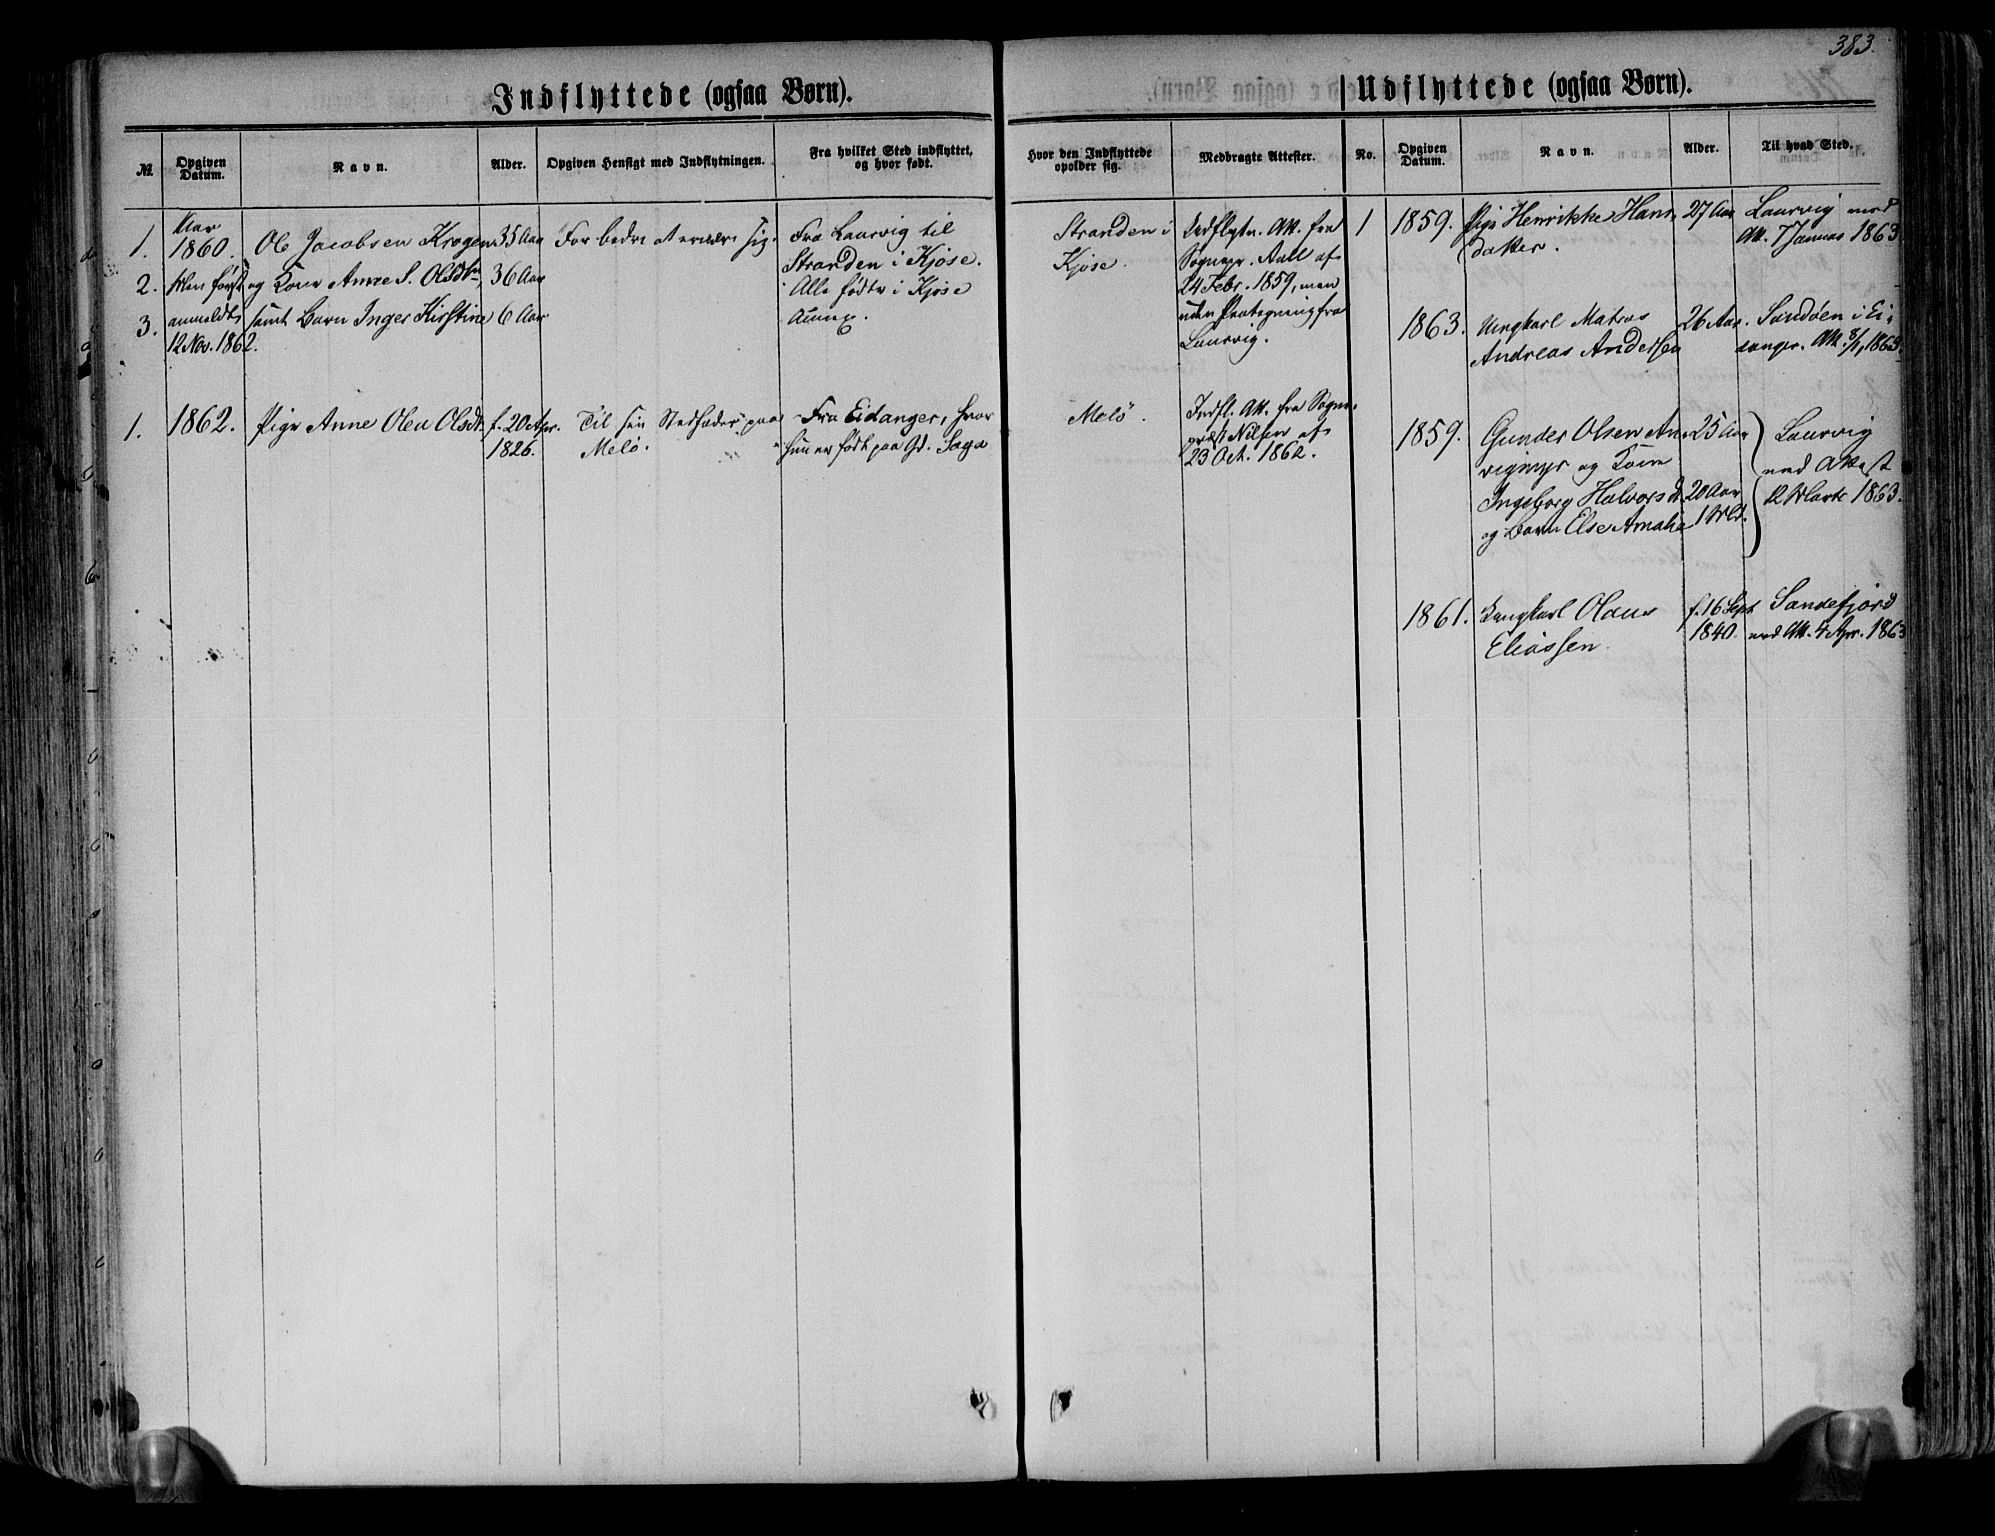 383.
Indflyttede (ogsaa Børn).
№
Opgiven Datum.
Navn.
Alder.
Opgiven Hensigt med Indflytningen.
Fra hvilket Sted indflyttet, og hvor født.
Hvor den Indflyttede opolder sig.
Medbragte Attester.
Udflyttede (ogsaa Børn).
No.
Opgiven Datum.
Navn.
Alder.
Til hvad Sted.
1. Aar 1860. Ole Jacobsen Krogen 35 Aar For bedre at ernære sig. Fra Laurvig til
2. Men først og Kone Anne S. Olsdtr 36 Aar Stranden i Kjose.
3. anmeldt samt Barn Inger Kirstine 6 Aar Alle fødte i Kjose
12 Nov. 1862. Annex.
Stranden i
Kjose.
Indflytn. Att. fra
Sognepr. Aall af
24 Febr. 1859, men
uden Paategning fra
Laurvig.
1. 1862. Pige Anne Olea Olsdt. f. 20 Apr. Til sin Stedfader paa Fra Eidanger, hvor
1826. Melø. hun er født paa Gd. Saga
Melö.
Indfl. Att. fra Sogne-
præst Nilsen af
23 Oct. 1862.
1 1859. Pige Henrikke Hans 27 Aar Laurvig med
datter. Att. 7 Januar 1863.
1863. Ungkarl Matros 26 Aar. Sandöen i Ei-
Andreas Anderssen danger. Att. 8/1 1863.
1859. Gunder Olsen An- 25 Aar Laurvig
vigmyr og Kone med Attest
Ingeborg Halvorsd. 20 Aar 12 Marts 1863.
og Barn Else Amalia 1 Md.
1861. Ungkarl Olaus f. 16 Sept Sandefjord
Eliassen. 1840. med Att. 4 Apr. 1863